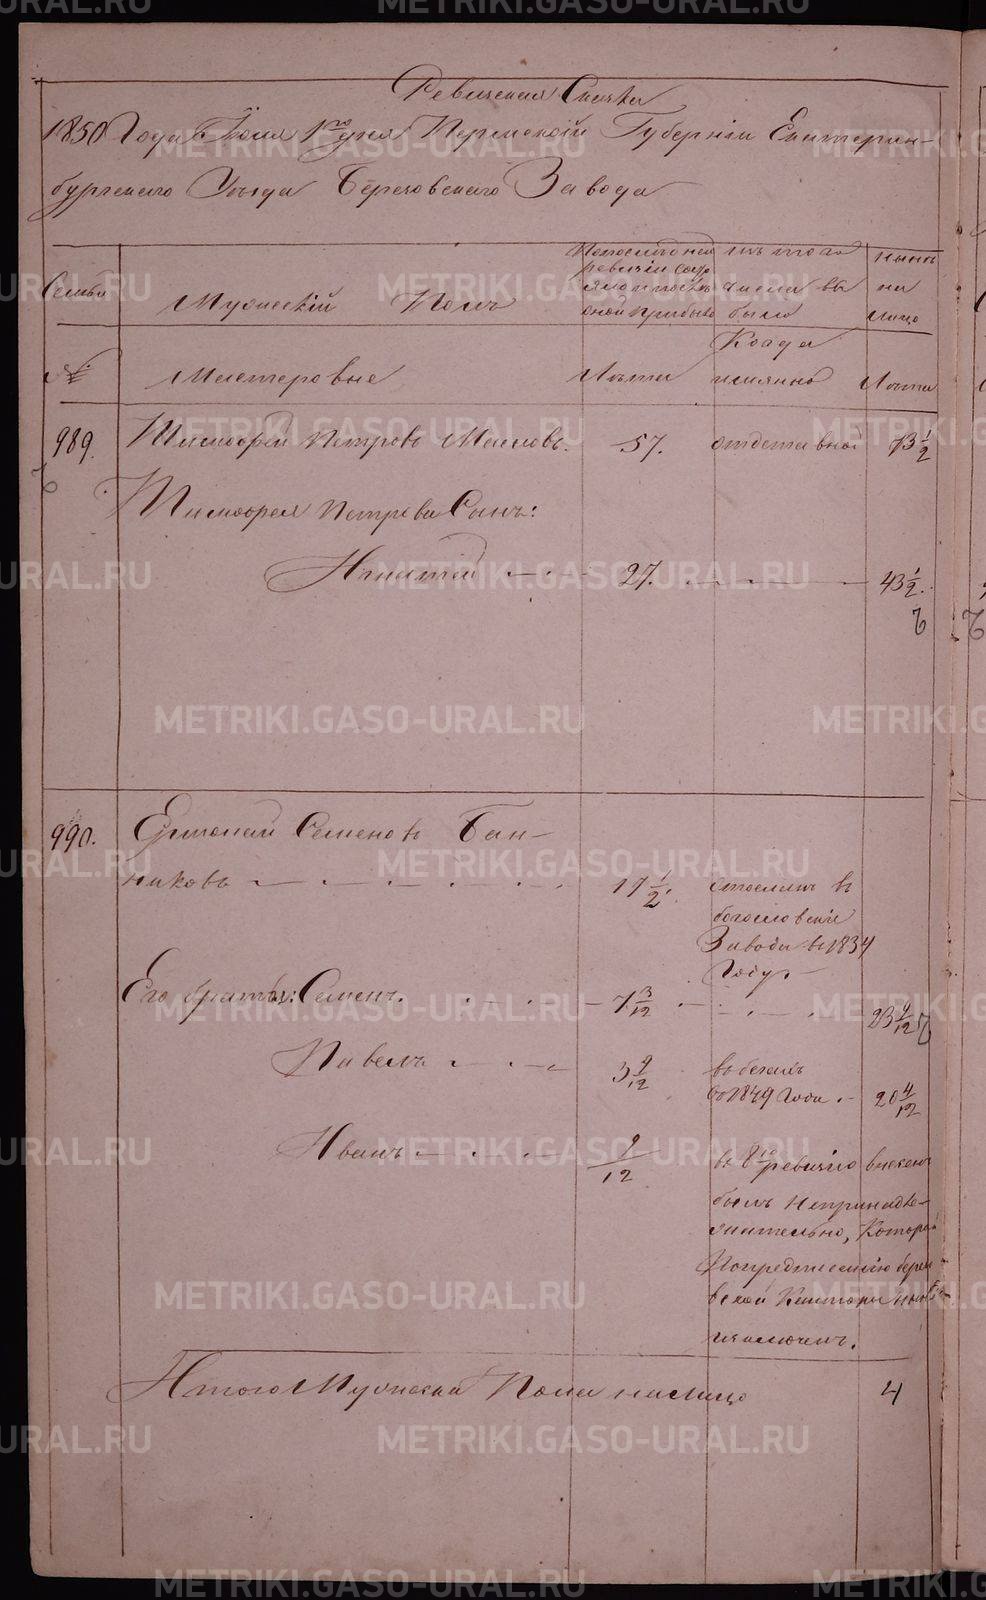 Ревизская Сказка
1850 Года Июля 1го дня Пермской Губерніи Екатерин-
бургскаго Уѣзда Березовскаго Завода
Семьи
Мужескій Полъ
По последней ревизіи состояло и послѣ оной прибыло
изъ того числа выбыло
нынѣ на лицо
№
Мастеровые
Лѣта
Когда именно
Лѣта
989. Тимофей Петровъ Масловъ. 57. отставной 73 1/2
Тимофея Петрова Сынъ:
Игнатей 27. 43 1/2.
990. Ермолай Семеновъ Бан-
никовъ 17 1/2. сосланъ въ
богословскій
Заводъ въ 1834
Году
Его братья: Семенъ. 7 3/12 23 9/12
Павелъ 3 9/12 въ бегахъ
съ 1849 Года 20 4/12
Иванъ 9/12 въ 8ю ревизію внесенъ
былъ непринадле-
жительно, Который
По предписанію берез
вской Конторы нынѣ
исключенъ.
Итого Мужеска Пола на лицо 4
METRIKI.GASO-URAL.RU